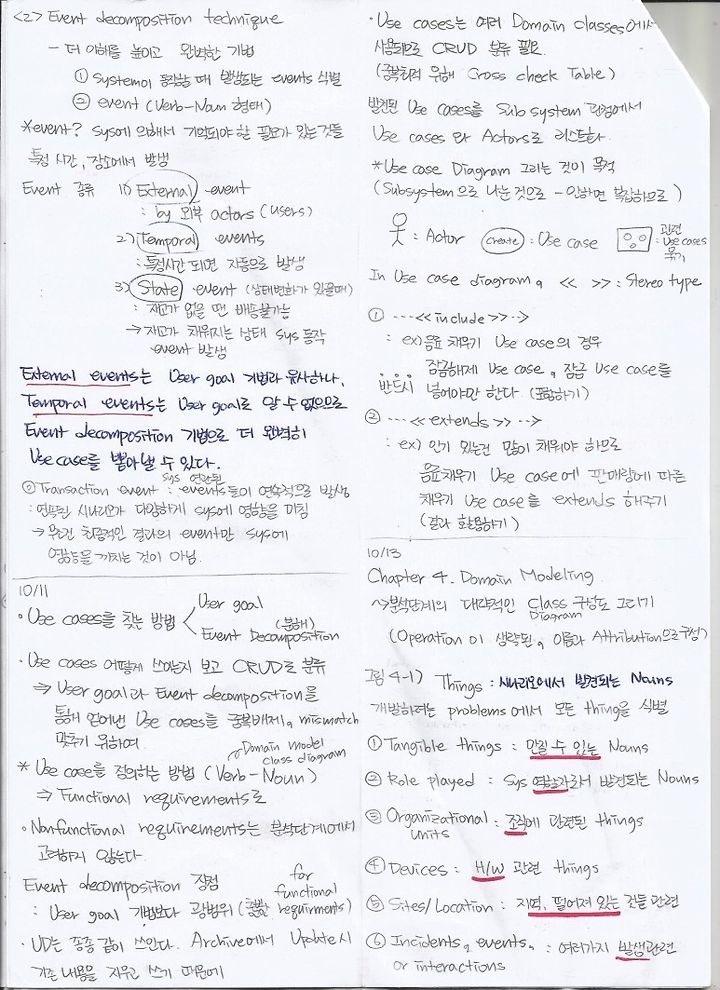 <2> Event decomposition technique
- 더 이해를 높이고 완벽한 기법
① System이 동작할 때 발생되는 events 식별
② event (Verb-Noun 형태)
*event? Sys에 의해서 기억되어야 할 필요가 있는것들
특정 시간, 장소에서 발생
Event 종류 1) External event
: by 외부 actors (users)
2) Temporal events
: 특정시간 되면 자동으로 발생
3) State event (상태변화가 있을때)
: 재고가 없을 땐 배송불가능
→ 재고가 채워지는 상태 sys 동작
event 발생
External events는 User goal 기법과 유사하나,
Temporal events는 User goal로 알 수 없으므로
Event decomposition 기법으로 더 완벽히
Use case를 뽑아낼 수 있다.
sys 연관된
◎ Transaction event : events들이 연속적으로 발생
: 연속된 시나리오가 다양하게 sys에 영향을 미침
→ 무조건 최종적인 결과의 event만 sys에
영향을 끼치는 것이 아님.
10/11
• Use cases를 찾는 방법 < User goal
Event Decomposition (분해)
• Use cases 어떻게 쓰이는지 보고 CRUD로 분류
⇒ User goal과 Event decomposition을
통해 얻어낸 Use cases를 중복배제, mismatch
맞추기 위하여
Domain model
class diagram
* Use case를 정의하는 방법 (Verb-Noun)
⇒ Functional requirements로
• Nonfunctional requirements는 분석단계에서
고려하지 않는다.
Event decomposition 장점
for
functional
: User goal 기법보다 광범위 ( requirments)
• UD는 종종 같이 쓰인다. Archive에서 Update시
기존 내용을 지우고 쓰기 때문에
• Use cases는 여러 Domain classes에서
사용되므로 CRUD 분류 필요.
(중복회피 위해 Cross check Table)
발견된 Use cases를 Subsystem 관점에서
Use cases 와 Actors로 리스트화.
*Use case Diagram 그리는 것이 목적
(Subsystem 으로 나눈 것으로 - 안하면 복잡하므로)
: Actor create : Use case : 관련 Use cases 묶기
In Use case diagram, << >> : Stereo type
① ---<<include>>--->
: ex) 음료 채우기 Use case의 경우
잠금해제 Use case, 잠금 Use case를
반드시 넣어야만 한다. (포함하기)
② ---<<extends>>--->
: ex) 인기 있는건 많이 채워야 하므로
음료채우기 Use case에 판매량에 따른
채우기 Use case를 extends 해주기
(결과 활용하기)
10/13
Chapter 4. Domain Modeling
~>분석단계의 대략적인 Class 구상도 그리기
Diagram
(Operation 이 생략된, 이름과 Attribution으로 구성)
그림 4-1) Things : 시나리오에서 발견되는 Nouns
개발하려는 problems 에서 모든 thing을 식별
① Tangible things : 만질 수 있는 Nouns
② Role played : Sys 역할자로서 발견되는 Nouns
③ Organizational : 조직에 관련된 things
units
④ Devices : H/W 관련 things
⑤ Sites/Location : 지역, 떨어져 있는 것들 관련
⑥ Incidents, events, : 여러가지 발생관련
or interactions